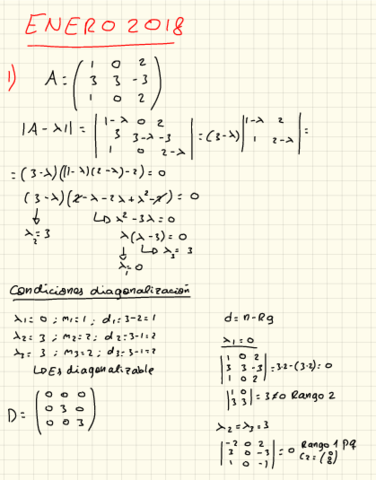 ENERO 2018
1) A = ( 1 0 2
3 3 -3
1 0 2 )
|A - λI| = | 1-λ 0 2
3 3-λ -3
1 0 2-λ | = (3-λ) | 1-λ 2
1 2-λ | =
= (3-λ) ((1-λ)(2-λ)-2) = 0
(3-λ)(2-λ-2λ+λ²-2) = 0
↓ ↳ λ²-3λ=0
λ₂=3 λ(λ-3)=0
↓ ↳ λ₃=3
λ₁=0
Condiciones diagonalización
λ₁=0 ; m₁=1 ; d₁=3-2=1
λ₂=3 ; m₂=2 ; d₂=3-1=2
λ₃=3 ; m₃=2 ; d₃=3-1=2
↳ Es diagonalizable
D = ( 0 0 0
0 3 0
0 0 3 )
d = n - Rg
λ₁=0
| 1 0 2
3 3 -3
1 0 2 | = 3·2-(3·2)=0
| 1 0
3 3 | = 3≠0 Rango 2
λ₂=λ₃=3
| -2 0 2
3 0 -3
1 0 -1 | = 0 Rango 1 pq
C2 = ( 0
0
0 )